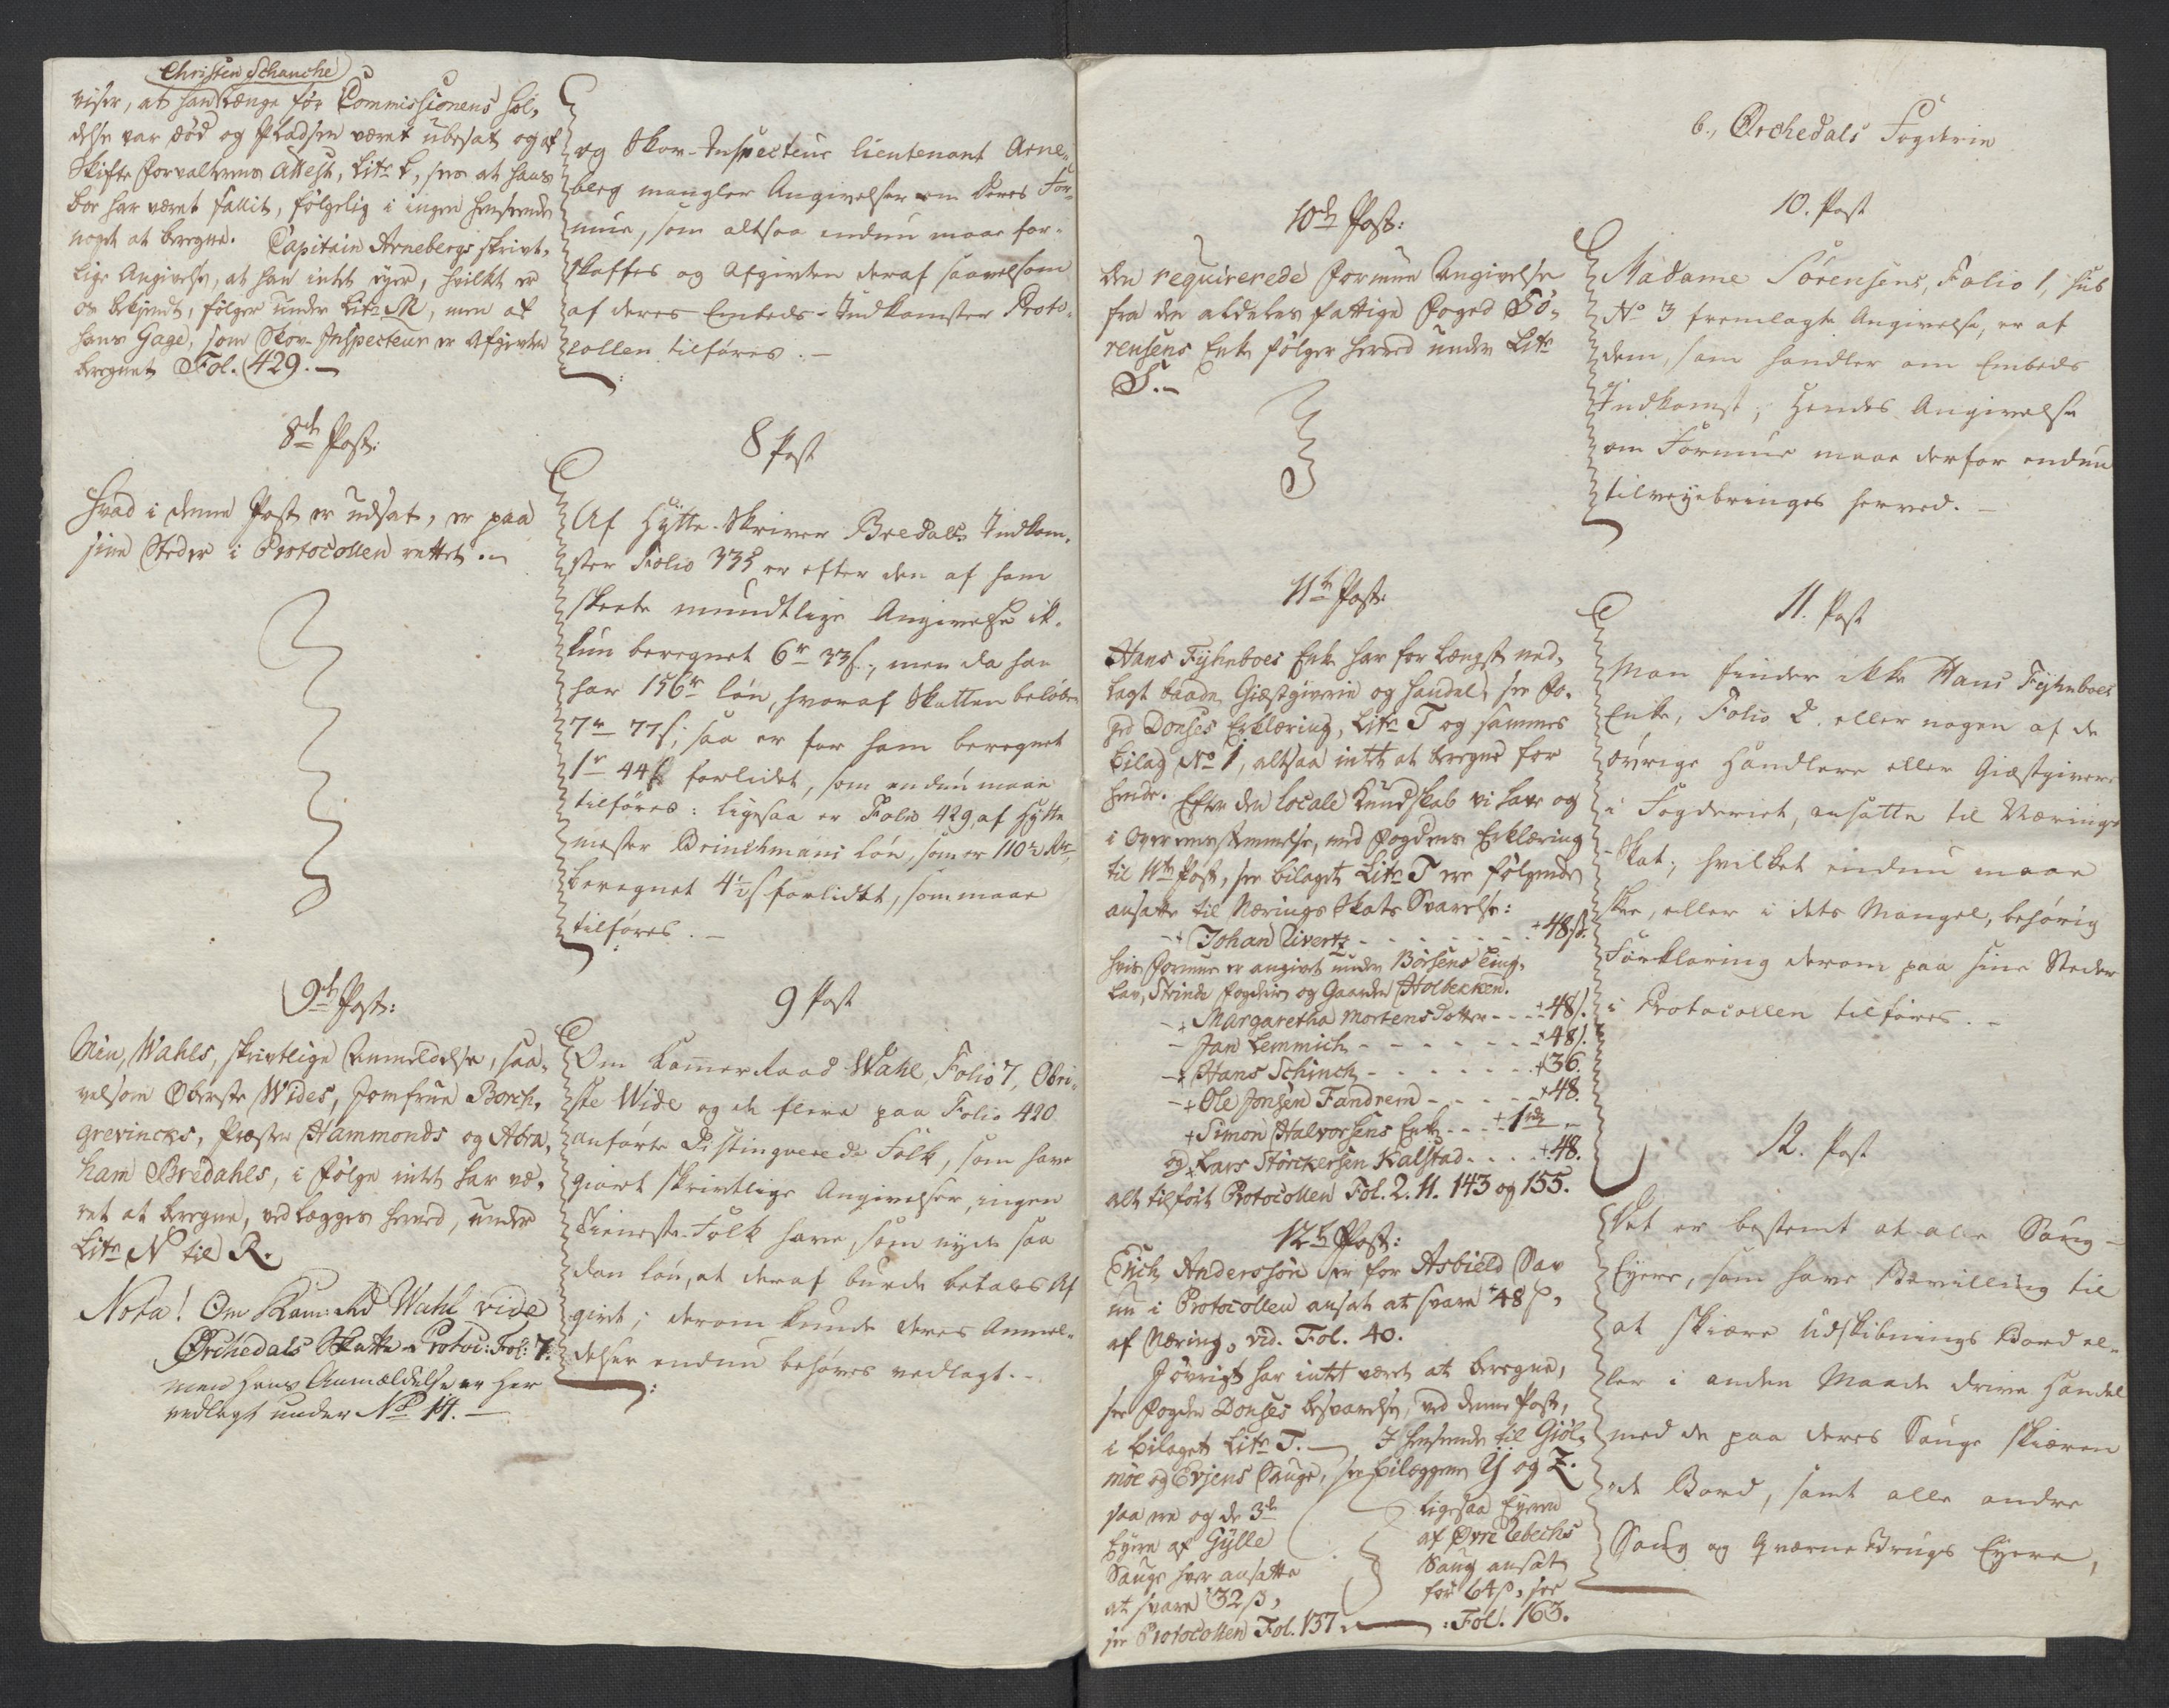 Christen Schanche
viser, at han længe før Commissionens Hol-
delse var død og Pladsen været ubesat og af
Skifte Forvalterens Attest, Litr L, sees at hans
Boe har været fallit, følgelig i ingen henseende
noget at beregne. Capitain Arnebergs skrivt-
lige Angivelse, at han intet eyer, hvilket er
os bekjendt, følger under Litr M, men af
hans Gage, som Skov-Inspecteur er Afgivten
beregnet Fol. 429.
8de Post:
Hvad i denne Post er udsat, er paa
sine Steder i Protocollen rettet.
9de Post:
Min, Wahls, skrivtlige Anmeldelse, saa-
velsom Oberste Wides, Jomfrue Borch-
grevincks, Præsten Hammonds og Abra-
ham Bredahls, i følge intet har væ-
ret at beregne, vedlægges herved, under
Litr N til R.
Nota! Om Kam: Rd Wahl vide
Orchedals Skatte-Protoc: Fol: 7.
men hans Anmældelse er her
vedlagt under No 14.
og Skov-Inspecteur Lieutenant Arne-
berg mangler Angivelser om deres For-
mue, som altsaa endnu maae for-
skaffes og Afgivten deraf saavelsom
af deres Embeds-Indkomster Proto-
collen tilføres.
8 Post
Af Hytte-Skriver Bredals Indkom-
ster Folio 335 er efter den af ham
skeete mundtlige Angivelse ik-
kun beregnet 6 r 33 s, men da han
har 156 r løn, hvoraf Skatten beløber
7 r 77 s, saa er for ham beregnet
1 r 44 s forlidet, som endnu maae
tilføres: ligesaa er Folio 429, af Hytte
mester Brinchmans løn, som er 110 Rdr,
beregnet 4½ s forlidet, som maae
tilføres.
9 Post
Om Kammerraad Wahl, Folio 7, Obri-
ste Wide og de flere paa Folio 420
anførte Distingverede Folk, som have
giort skrivtlige Angivelser, ingen
Tieneste-Folk have, som nyde saa
dan løn, at deraf burde betales Af
givt; derom kunde deres Anmel-
delser endnu behøves vedlagt.
6., Orchedals Fogderie
10de Post:
Den requirerede Formue Angivelse
fra den aldeles fattige Foged Sö-
rensens Enke følger herved under Litr
S.
11te Post:
Hans Fyhnboes Enke har for længst ned-
lagt baade Giæstgiverie og Handel, see Fo-
ged Donses Erklæring, Litr T og sammes
bilag No 1, altsaa intet at beregne for
hende. Efter den locale Kundskab vi have og
i Overeensstemmelse, med Fogdens Erklæring
til 11te Post, see bilaget Litr T ere følgende
ansatte til Nærings Skats Svarelse:
Johan Sivertz - - - 48 s.
hvis Formue er angivet under Börsens Ting-
lav, Strinde Fogderie og Gaarden Holbecken.
Margaretha Mortensdotter - - 48 s.
Jan Lemmich - - - 48 s.
Hans Schinck - - - 36.
Ole Jonsen Fandrem - - - 48.
Simon Halvorsens Enke - - 1 rd
og Lars Störckersen Kalstad - - 48.
alt tilført Protocollen Fol. 2. 11. 143 og 155.
12te Post:
Erich Anderssön er for Asbield Sav
nu i Protocollen ansat at svare 48 s,
af Næring, vid. Fol. 40.
I øvrigt har intet været at beregne,
see Fogden Donses besvarelse, ved denne Post,
i bilaget Litr T. — I henseende til Giöl-
möe og Evjens Sauge, see bilaggene Y og Z.
saa ere og de 3de
Eyere af Gylle
Sauge hver ansatte
at svare 32 s,
see Protocollen Fol. 137
ligesaa Eyeren
af Øvre Lebechs
Saug ansat
for 64 s, see
Fol. 163.
10. Post
Madame Sörensens, Folio 1, sub
No 3 fremlagte Angivelse, er af
dem, som handler om Embeds
Indkomst; Hendes Angivelse
om Formue maae derfor endnu
tilveyebringes herved.
11. Post
Man finder ikke Hans Fyhnboes
Enke, Folio 2. eller nogen af de
øvrige Handlere eller Giæstgivere
i Fogderiet, ansatte til Nærings
Skat; hvilket endnu maae
skee, eller i dets Mangel, behørig
Forklaring derom paa sine Steder
i Protocollen tilføres.
12. Post
Det er bestemt at alle Saug-
Eyere, som have Bevilling til
at skiære Udskibnings Bord el-
ler i anden Maade drive Handel
med de paa deres Sauge skiæren
de Bord, samt alle andre
Saug og Qværnebrugs Eyere,